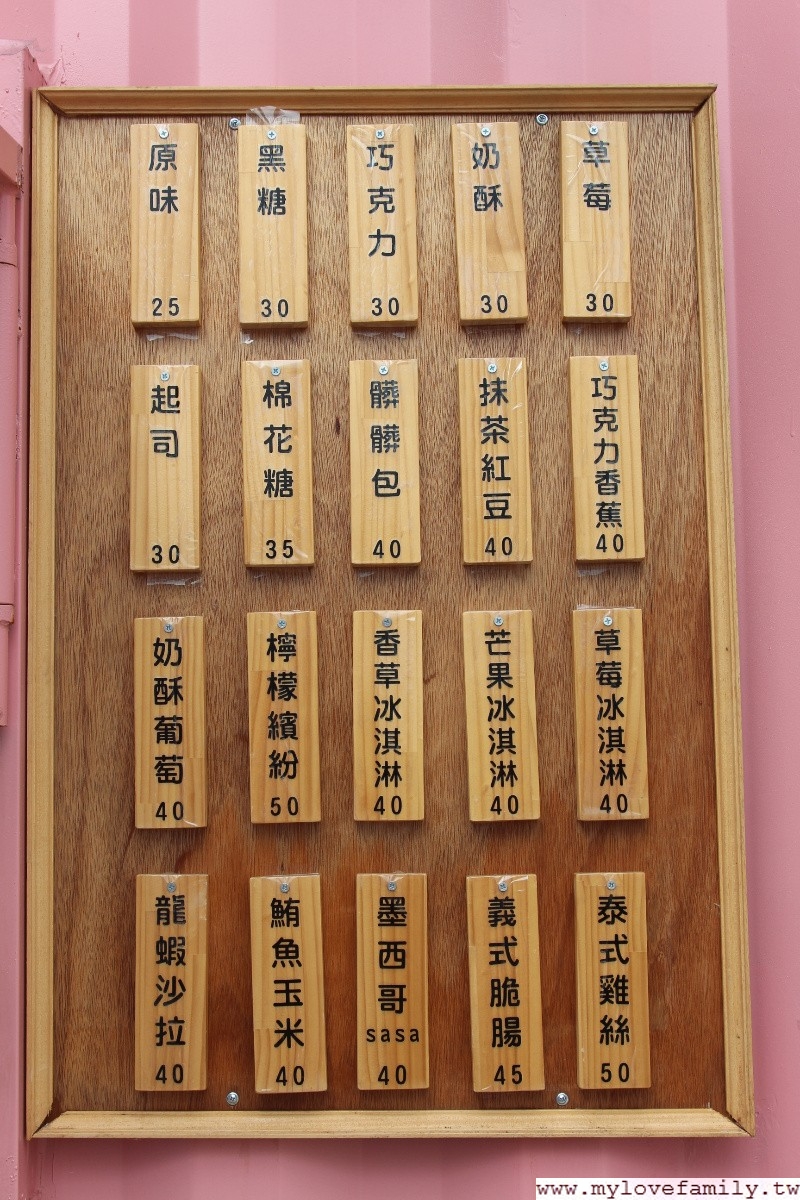 原味 25
黑糖 30
巧克力 30
奶酥 30
草莓 30
起司 30
棉花糖 35
髒髒包 40
抹茶紅豆 40
巧克力香蕉 40
奶酥葡萄 40
檸檬繽紛 50
香草冰淇淋 40
芒果冰淇淋 40
草莓冰淇淋 40
龍蝦沙拉 40
鮪魚玉米 40
墨西哥sasa 40
義式脆腸 45
泰式雞絲 50
www.mylovefamily.tw